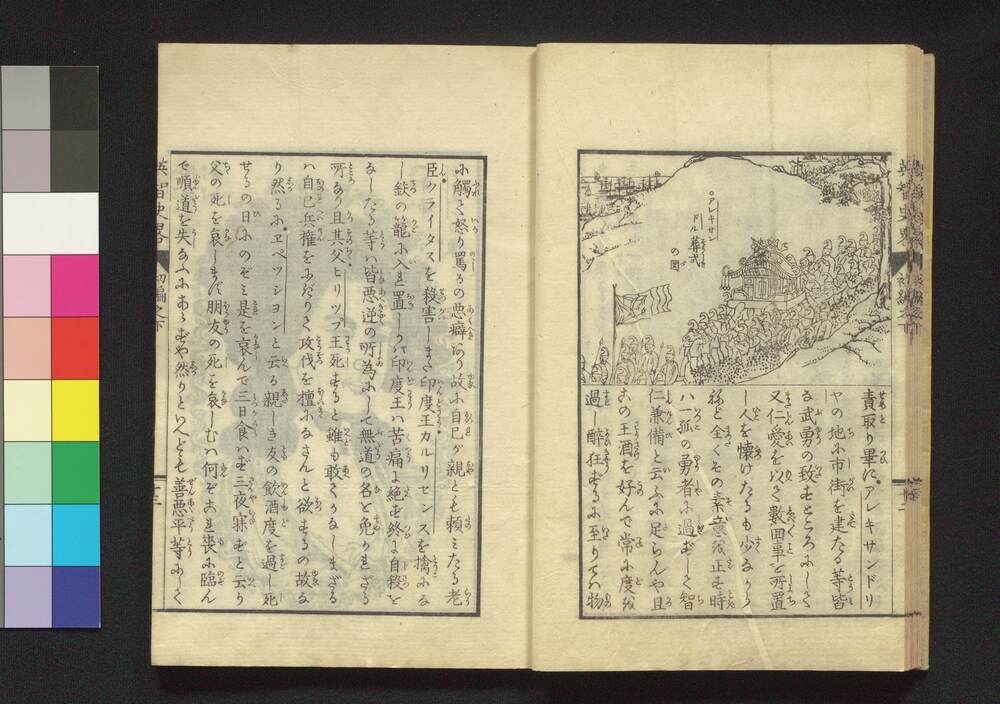 アレキサン
ドル葬式
の図
責取り畢に。アレキサンドリ
ヤの地に市街を建たる等皆
な武勇の致すところにして
又仁愛を以て数回事を所置
し人を懐けたるも少なから
ねど全くその素意を正す時
ハ一孤の勇者に過ずして智
仁兼備と云ふに足らんや且
この王酒を好んで常に度を
過し酔狂するに至りてハ物
に触て怒り罵るの悪癖あり故に自己が親とも頼ミたる老
臣クライタスを殺害しまた印度王カルリセンスを擒にな
し鉄の籠に入れ置しかバ印度王ハ苦痛に絶ず終に自殺を
なしたる等ハ皆悪逆の所為にして無道の名を免かれざる
所なり且其父ヒリップ王死すると雖も敢てかなしまざる
ハ自己兵権をにぎりて攻伐を擅になさんと欲するの故な
り然るにヱペッションと云る親しき友の飲酒度を過し死
せるの日にのぞミ是を哀んで三日食ハず三夜寐ずと云り
父の死を哀しまで朋友の死を哀しむハ何ぞや其喪に臨ん
で順道を失なふにあらずや然りといへども善悪平等にして
英智史略
初編之下